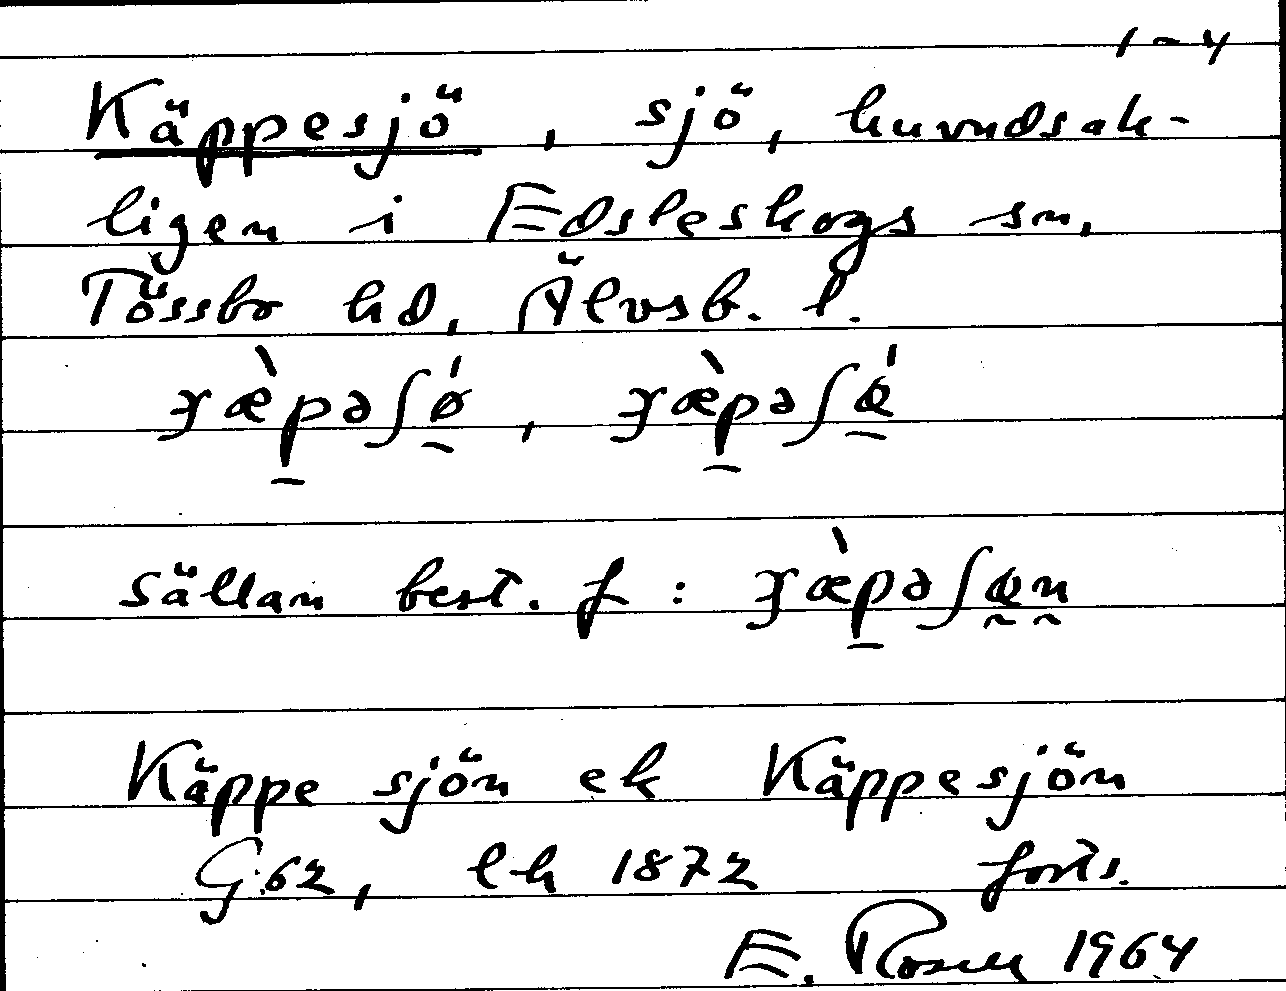 1-4
Käppesjö, sjö, huvudsak-
ligen i Edsleskogs sn,
Tössbo hd, Älvsb. l.
sällan best. f :
Käppe sjön ek Käppesjön
G:62, lh 1872 forts.
E. Rosell 1964